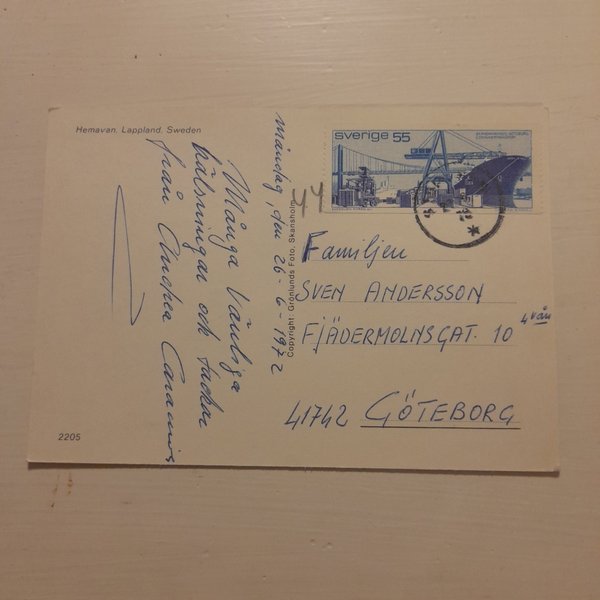 Hemavan. Lappland. Sweden
måndag, den 26-6-1972
Många Vänliga
hälsningar och tackar
från Andrea
Copyright: Grönlunds Foto, Skansholm
44
sverige 55
Familjen
SVEN ANDERSSON
FJÄDERMOLNSGAT. 10
4 vån
41742 GÖTEBORG
2205